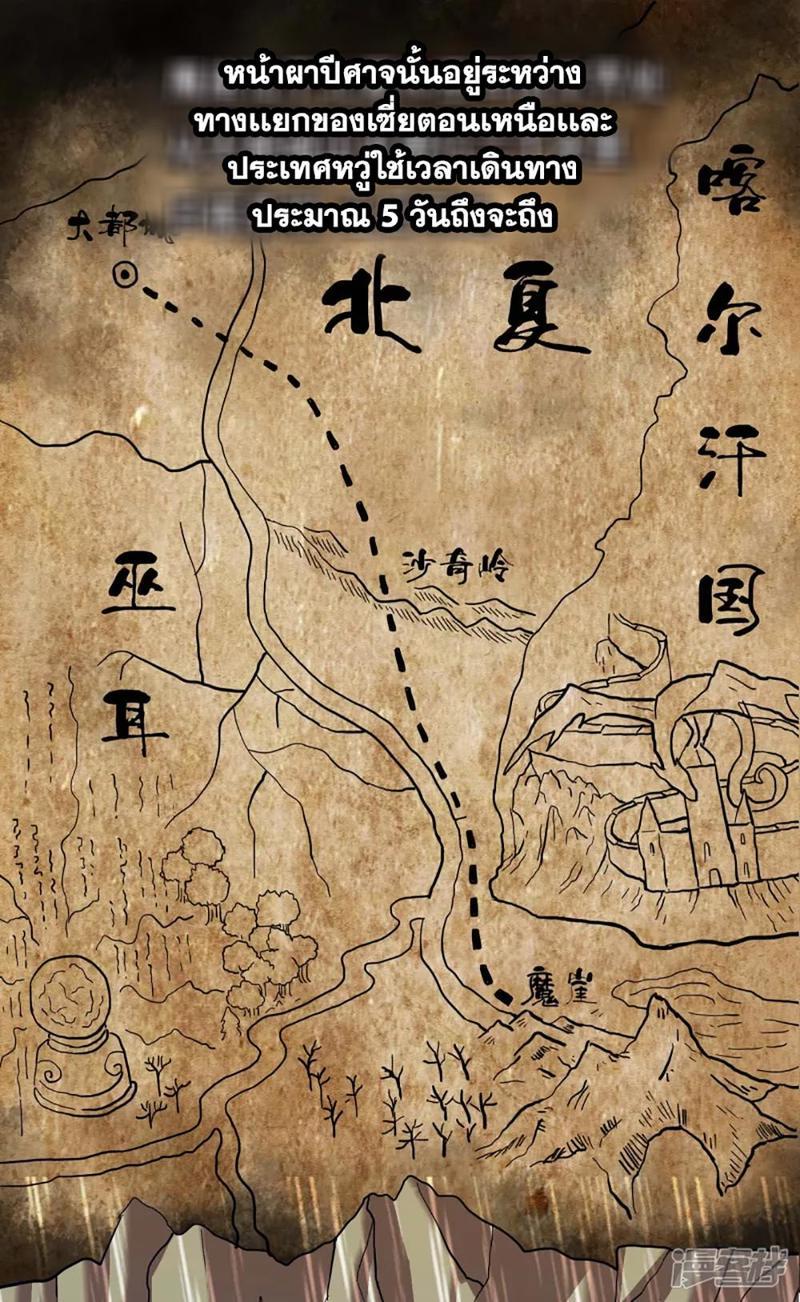 หน้าผาปีศาจนั้นอยู่ระหว่าง
ทางแยกของเซี่ยตอนเหนือและ
ประเทศหวู่ใช้เวลาเดินทาง
ประมาณ 5 วันถึงจะถึง
大都
北夏
喀尔汗国
沙奇岭
巫耳
魔崖
漫客栈